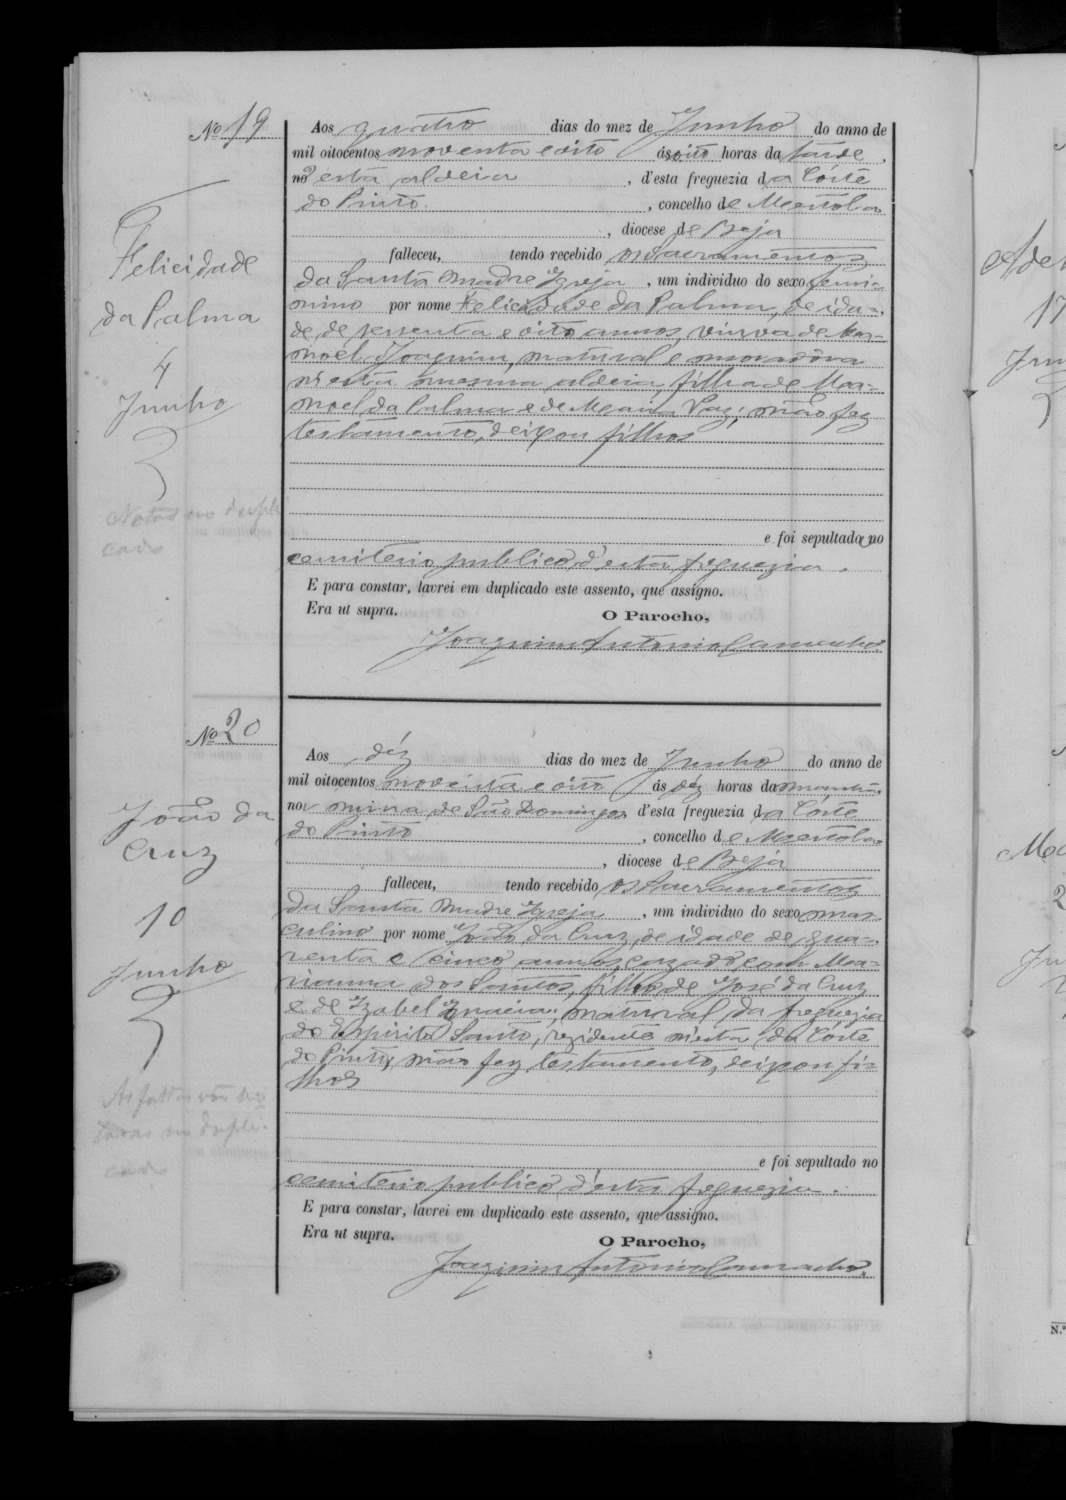 Nº 19
Aos quatro dias do mez de Junho do anno de
mil oitocentos noventa e oito ás oito horas da tarde,
n'esta aldeia, d'esta freguezia da Côrte
do Pinto, concelho de Mertola,
, diocese de Beja
falleceu, tendo recebido os Sacramentos
da Santa Madre Igreja, um individuo do sexo femi-
nino por nome Felicidade da Palma, de ida-
de de sessenta e oito annos, viuva de Ma-
noel Joaquim, natural e moradôra
n'esta mesma aldeia, filha de Ma-
noel da Palma e de Maria Vaz; não fez
testamento, deixou filhos
e foi sepultada no
cemiterio publico d'esta freguezia.
E para constar, lavrei em duplicado este assento, que assigno.
Era ut supra.
O Parocho,
Joaquim Antonio Camacho.
Felicidade
da Palma
4
Junho
Notas no dupli
cado
Nº 20
Aos déz dias do mez de Junho do anno de
mil oitocentos noventa e oito ás déz horas da manhã,
na mina de São Domingos d'esta freguezia da Côrte
do Pinto, concelho de Mertola,
, diocese de Beja
falleceu, tendo recebido os Sacramentos
da Santa Madre Igreja, um individuo do sexo mas-
culino por nome João da Cruz, de idade de qua-
renta e cinco annos, cazado com Ma-
rianna dos Santos, filho de José da Cruz
e de Izabel Ignacia; natural da freguezia
do Espirito Santo, rezidente n'esta da Côrte
do Pinto, não fez testamento, deixou fi-
lhos
e foi sepultado no
cemiterio publico d'esta freguezia.
E para constar, lavrei em duplicado este assento, que assigno.
Era ut supra.
O Parocho,
Joaquim Antonio Camacho.
João da
Cruz
10
Junho
As faltas vão
no dupli-
cado
17
N.º